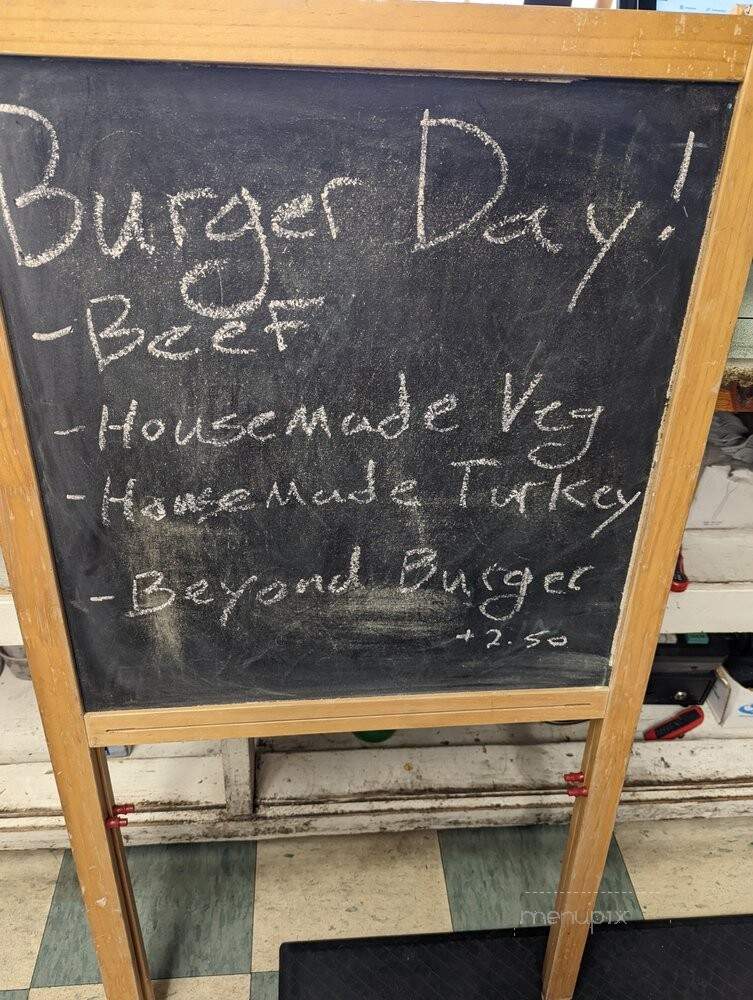 Burger Day!
- Beef
- Housemade Veg
- Housemade Turkey
- Beyond Burger
+2.50
menupix